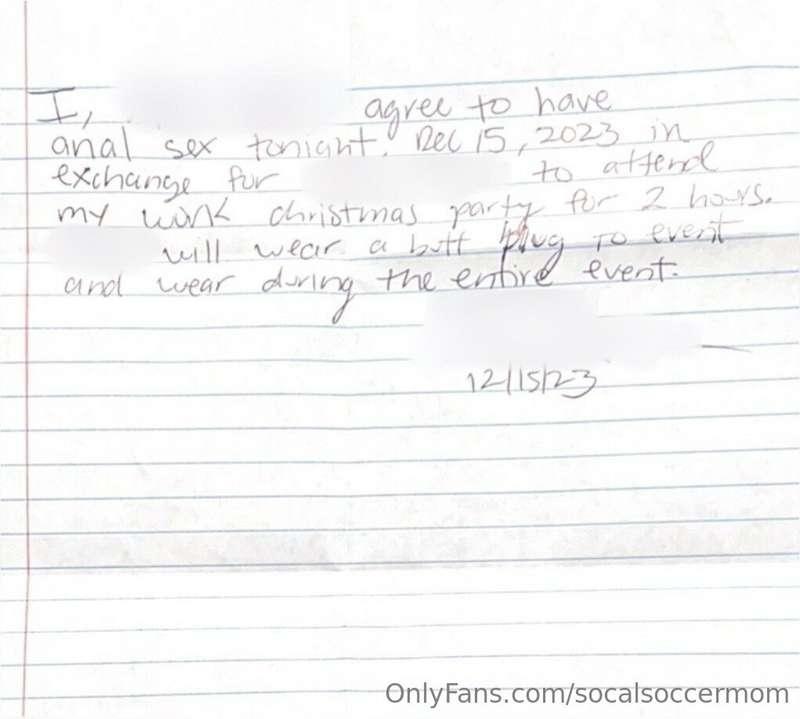 I, agree to have
anal sex tonight. Dec 15, 2023 in
exchange for to attend
my work christmas party for 2 hours.
will wear a butt plug to event
and wear during the entire event.
12/15/23
OnlyFans.com/socalsoccermom